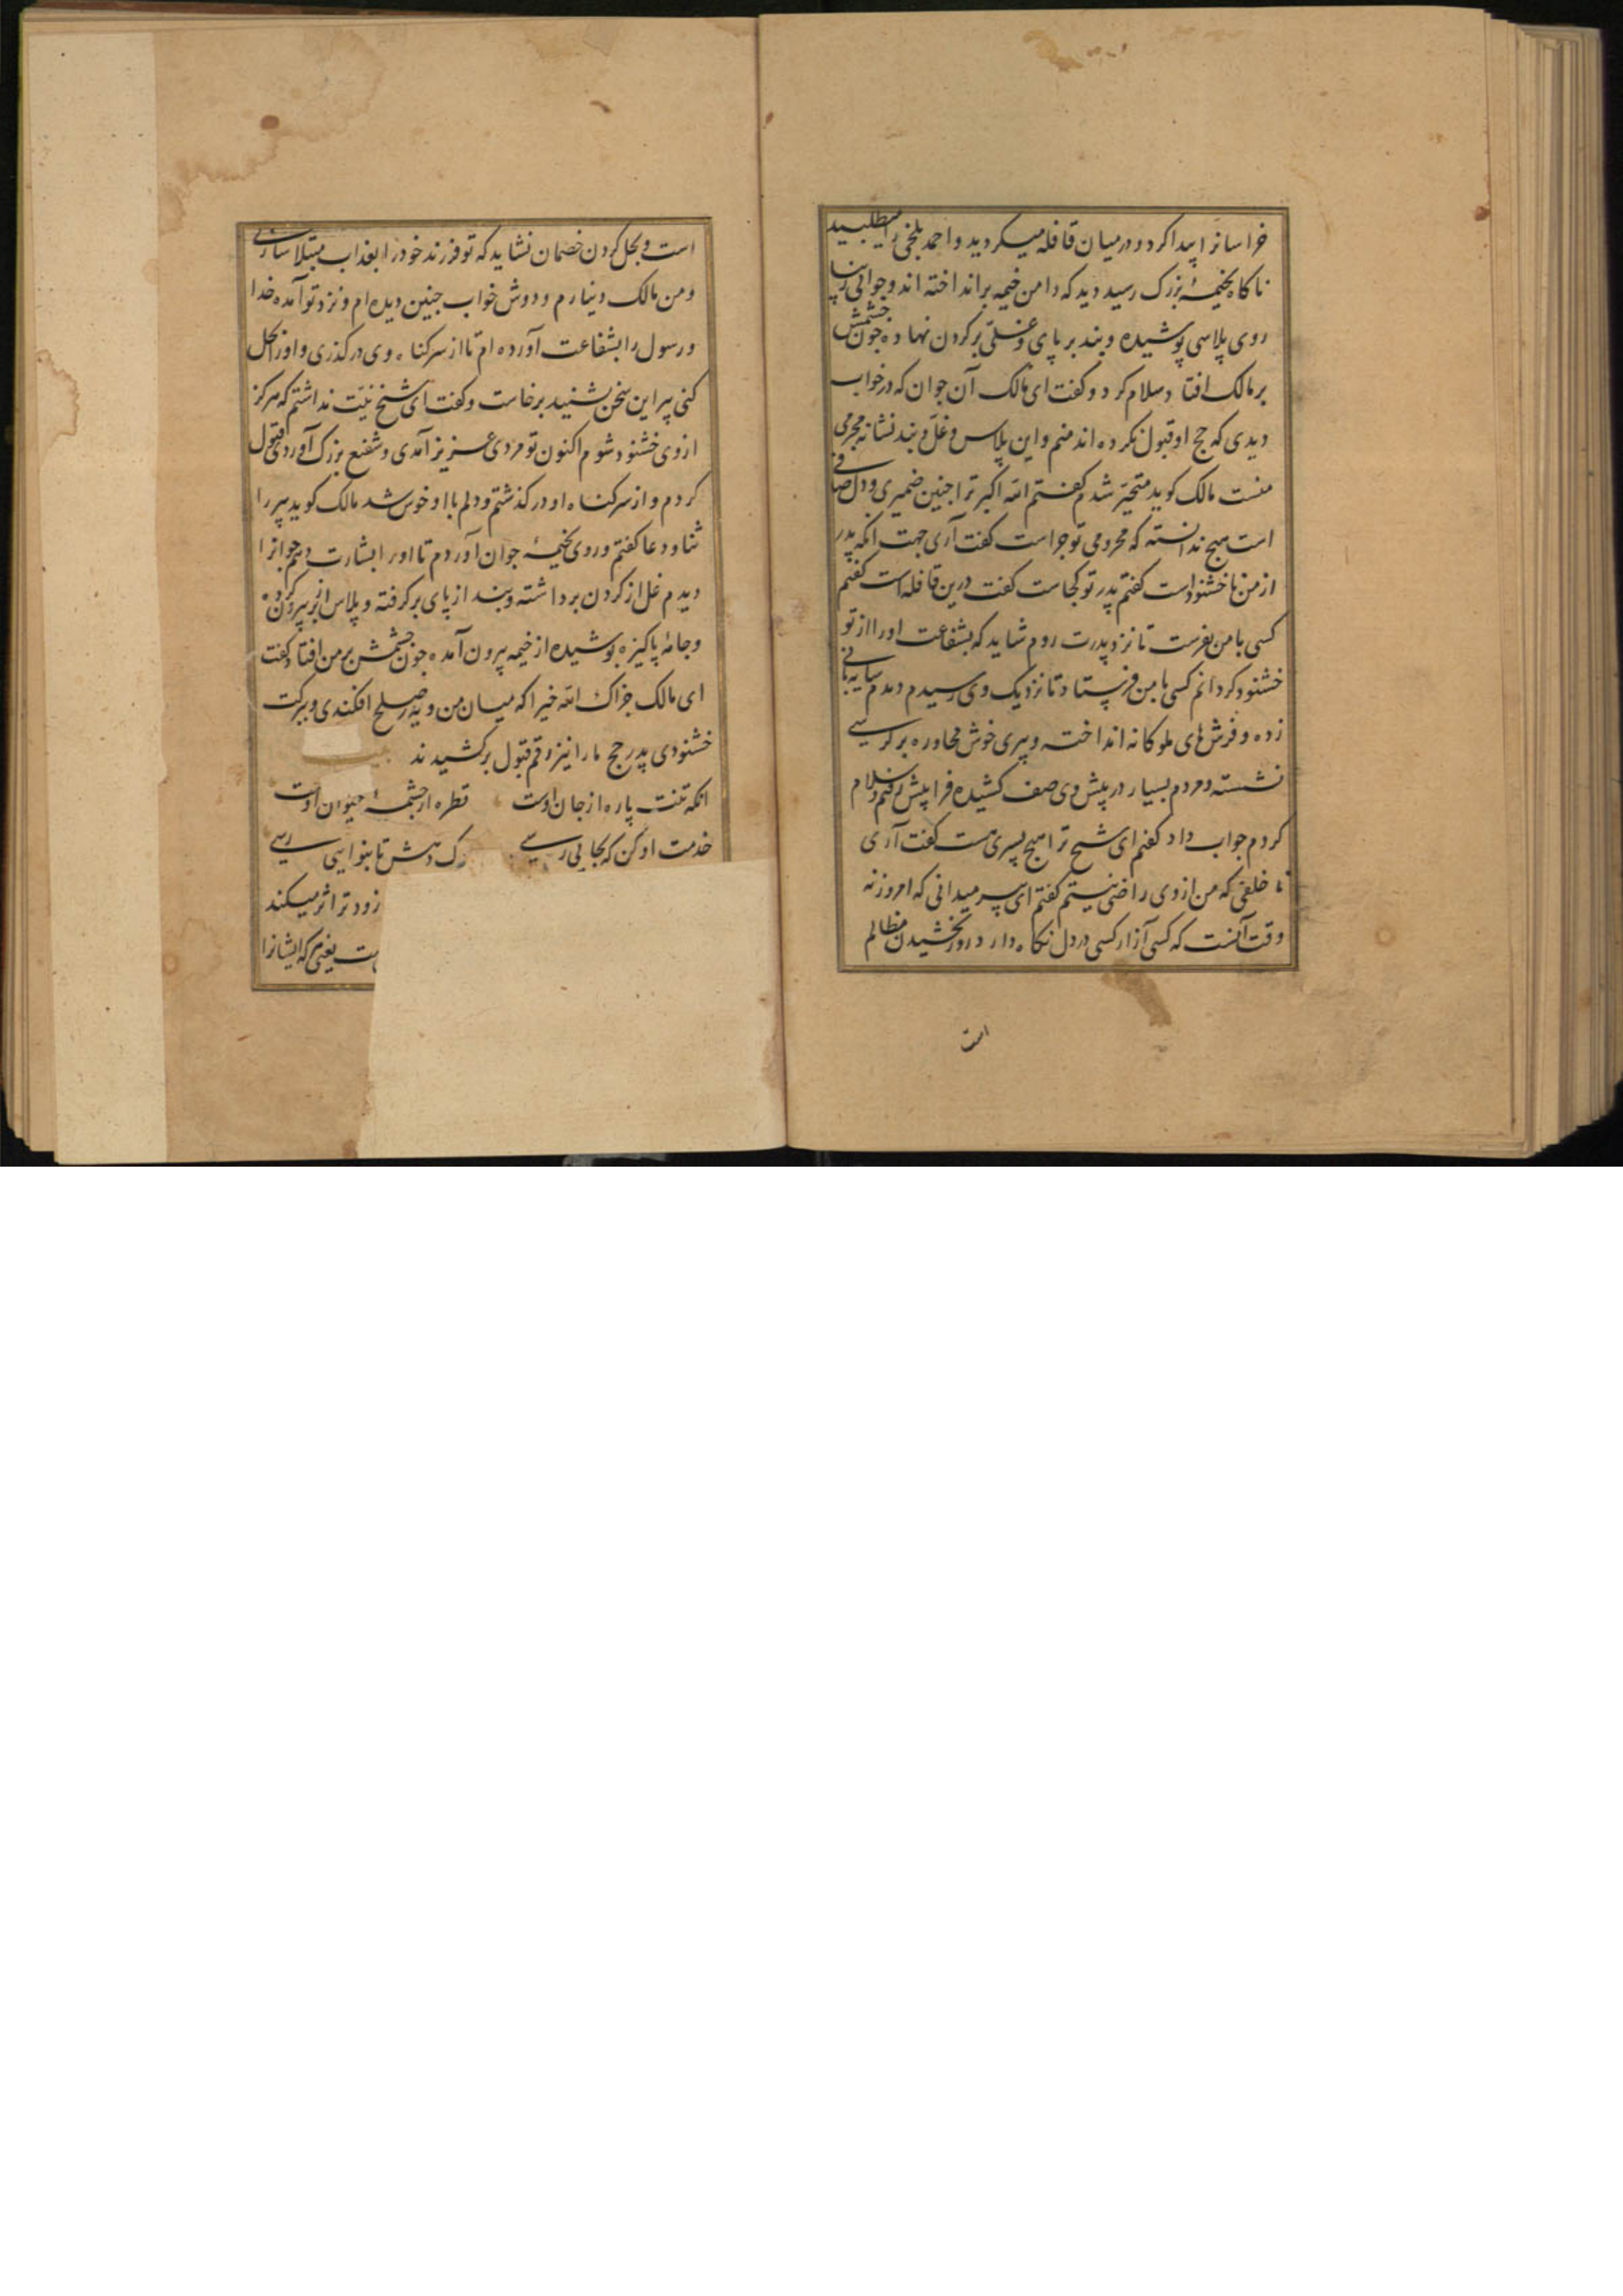 خراسانرا پیدا کرد و در میان قافله میکردید و احمد بلخی را میطلبید
ناکاه بخیمهٔ بزرک رسید دید که دامن خیمه بر انداخته اند و جوانی زیبا
روی پلاسی پوشیده و بند بر پای و غلی بر کردن نهاده جون جشمش
بر مالک افتاد سلام کرد و کفت ای مالک آن جوان که در خواب
دیدی که حج او قبول نکرده اند منم و این پلاس و غل و بند نشانه مجرمی
منست مالک کوید متحیر شدم کفتم الله اکبر ترا جنین ضمیری و دل صافی
است هیج ندانسته که محرومی تو جراست کفت آری جهت انکه پدر
از من ناخشنود است کفتم پدر تو کجاست کفت درین قافله است کفتم
کسی با من بفرست تا نزد پدرت روم شاید که بشفاعت او را از تو
خشنود کردانم کسی با من فرستاد تا نزدیک وی رسیدم دیدم سایه بانی
زده و فرش های ملوکانه انداخته و پیری خوش محاوره بر کرسی
نشسته و مردم بسیار در پیش وی صف کشیده فرا پیش رفتم و سلام
کردم جواب داد کفتم ای شیح ترا هیج پسری هست کفت آری
نا خلفی که من از وی راضی نیستم کفتم ای پیر میدانی که امروز نه
وقت آنست که کسی آزار کسی در دل نکاه دارد روز بخشیدن مظالم
است
است و بحل کردن خصمان نشاید که تو فرزند خود را بعذاب مبتلا سازی
و من مالک دینارم و دوش خواب جنین دیده ام و نزد تو آمده خدا
و رسول را بشفاعت آورده ام تا از سر کناه وی در کذری و او را بحل
کنی پیر این سخن بشنید برخاست و کفت ای شیخ نیت نداشتم که هرکز
از وی خشنود شوم اکنون تو مردی عزیز آمدی و شفیع بزرک آوردی قبول
کردم و از سر کناه او در کذشتم و دلم با او خوش شد مالک کوید پیر را
ثنا و دعا کفتم و روی بخیمهٔ جوان آوردم تا او را بشارت دهم جوانرا
دیدم غل از کردن برداشته و بند از پای بر کرفته و پلاس از بر بیرون کرده
و جامهٔ پاکیزه پوشیده از خیمه بیرون آمده جون جشمش بر من افتاد کفت
ای مالک جزاک الله خیرا که میان من و پدر صلح افکندی و ببرکت
خشنودی پدر حج ما را نیز رقم قبول بر کشیدند
انکه تنت پاره از جان اوست قطره از جشمهٔ حیوان اوست
خدمت او کن که بجایی رسی رک دهش تا بنوایی رسی
زودتر اثر میکند
ست یغنی که ایشانرا